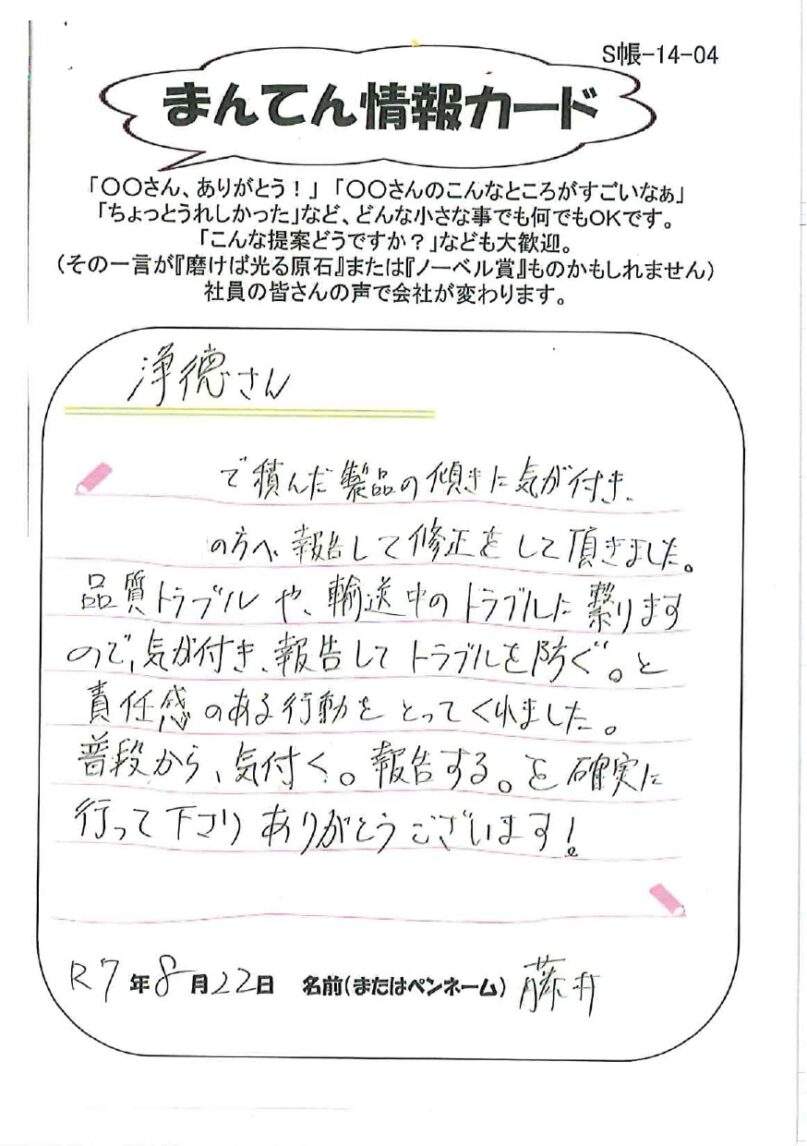 S帳-14-04
まんてん情報カード
「〇〇さん、ありがとう！」「〇〇さんのこんなところがすごいなぁ」
「ちょっとうれしかった」など、どんな小さな事でも何でもOKです。
「こんな提案どうですか？」なども大歓迎。
（その一言が『磨けば光る原石』または『ノーベル賞』ものかもしれません）
社員の皆さんの声で会社が変わります。
浄徳さん
で積んだ製品の傾きに気が付き、
の方へ、報告して修正をして頂きました。
品質トラブルや、輸送中のトラブルに繋ります
ので、気が付き、報告してトラブルを防ぐ。と
責任感のある行動をとってくれました。
普段から、気付く。報告する。を確実に
行って下さりありがとうございます!
R7年8月22日 名前(またはペンネーム) 藤井